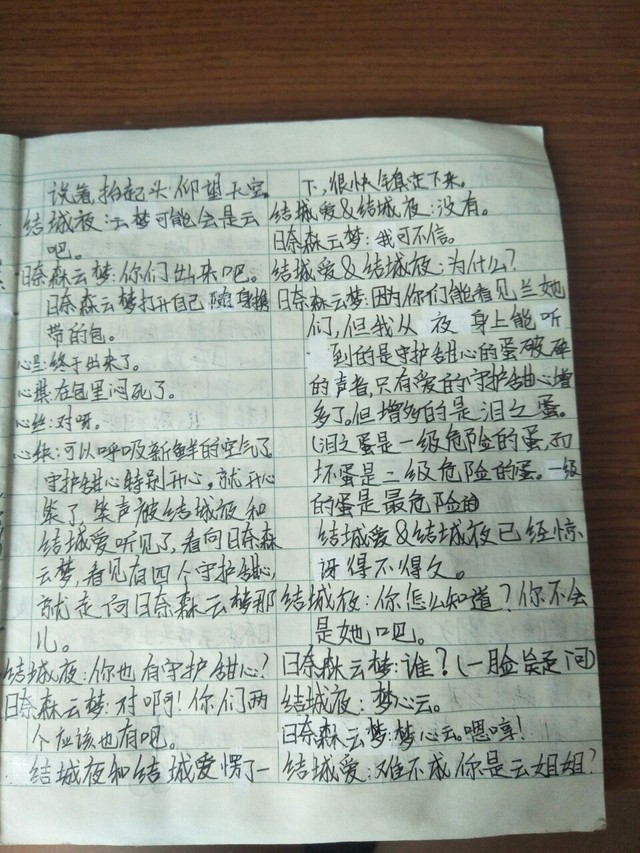 说着,抬起头仰望天空。
结城夜:云梦可能会是云
吧。
日奈森云梦:你们出来吧。
日奈森云梦打开自己随身携
带的包。
心兰:终于出来了。
心祺:在包里闷死了。
心丝:对呀。
心银:可以呼吸新鲜的空气了。
守护甜心特别开心,就开心
笑了,笑声被结城夜和
结城爱听见了,看向日奈森
云梦,看见有四个守护甜心,
就走向日奈森云梦那
儿。
结城夜:你也有守护甜心?
日奈森云梦:对啊!你们两
个应该也有吧。
结城夜和结城爱愣了一
下,很快镇定下来。
结城爱&结城夜:没有。
日奈森云梦:我可不信。
结城爱&结城夜:为什么?
日奈森云梦:因为你们能看见兰她
们,但我从夜身上能听
到的是守护甜心的蛋破碎
的声音,只有爱的守护甜心增
多了。但增多的是泪之蛋。
(泪之蛋是一级危险的蛋,而
坏蛋是二级危险的蛋。一级
的蛋是最危险的
结城爱&结城夜已经惊
讶得不得久。
结城夜:你怎么知道?你不会
是她吧。
日奈森云梦:谁?(一脸疑问)
结城夜:梦心云。
日奈森云梦:梦心云。嗯哼!
结城爱:难不成你是云姐姐?